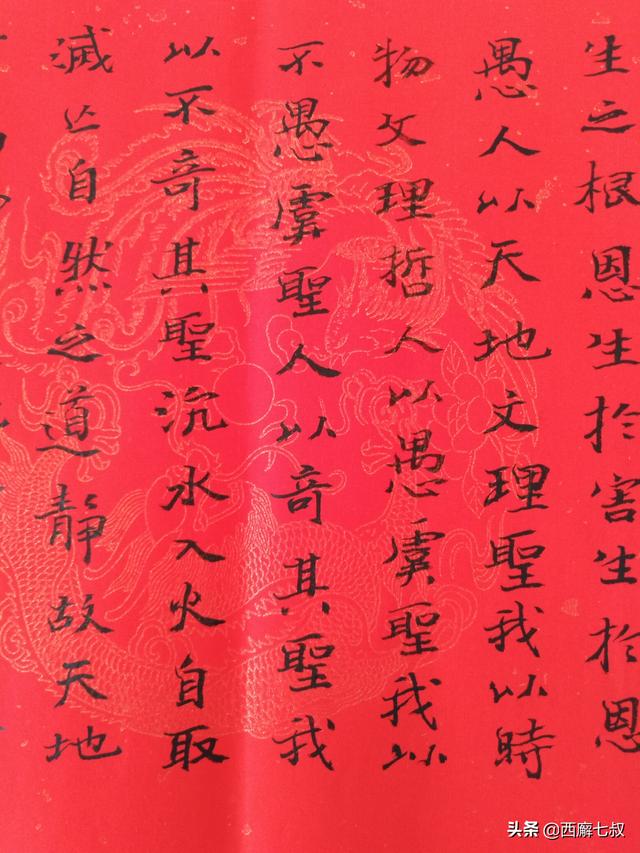 生之根恩生於害生於恩
愚人以天地文理聖我以時
物文理哲人以愚虞聖我以
不愚虞聖人以奇其聖我
以不奇其聖沉水入火自取
滅亡自然之道靜故天地
头条 @西廨七叔